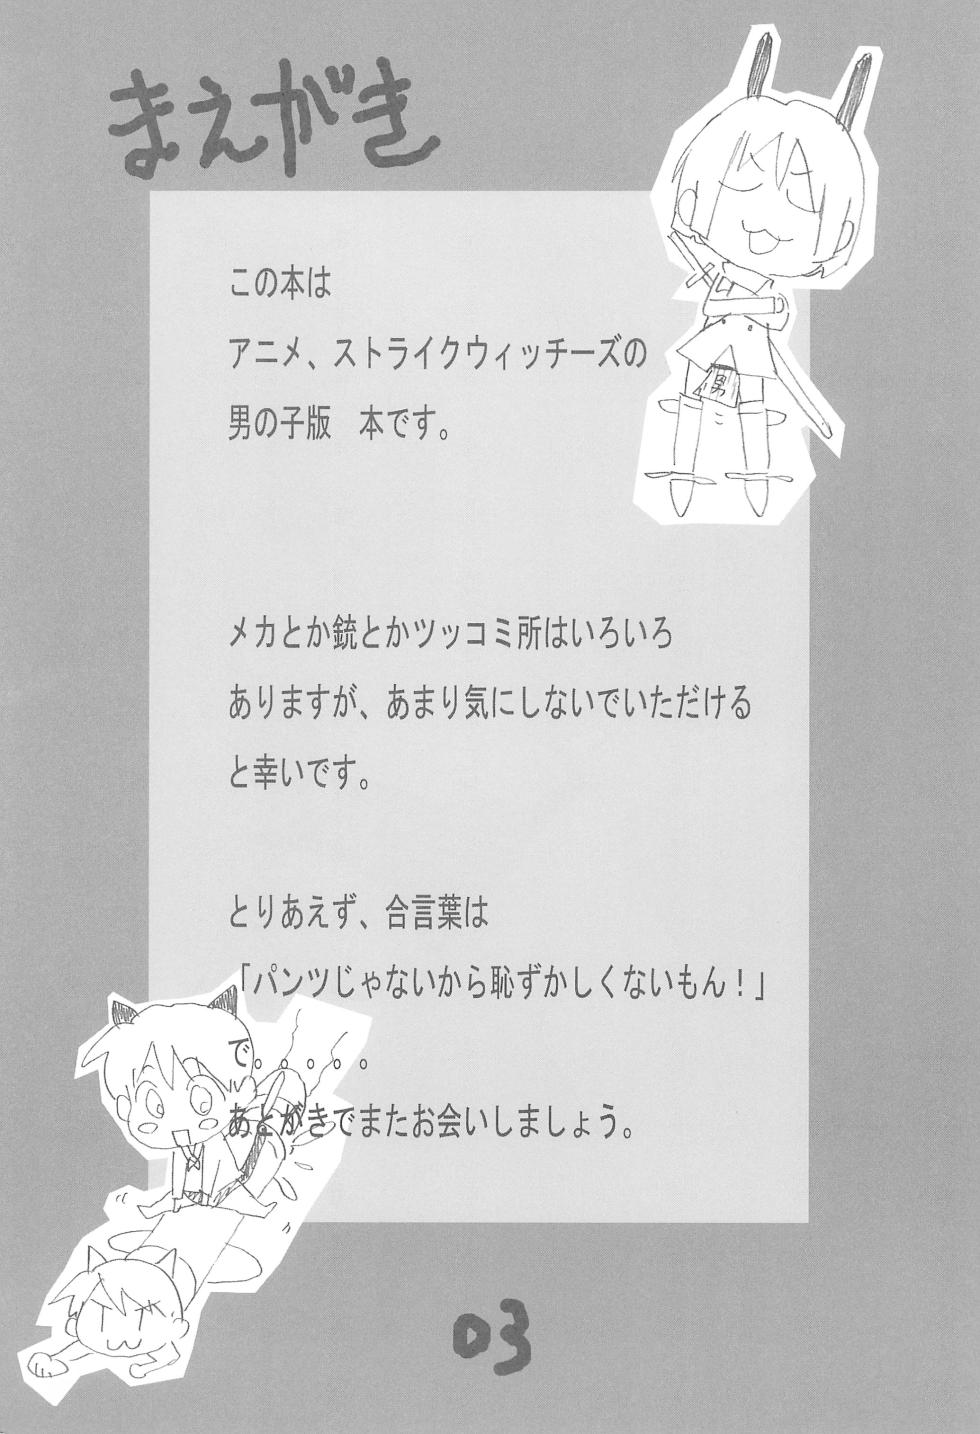 まえがき
この本は
アニメ、ストライクウィッチーズの
男の子版　本です。
男
メカとか銃とかツッコミ所はいろいろ
ありますが、あまり気にしないでいただける
と幸いです。
とりあえず、合言葉は
「パンツじゃないから恥ずかしくないもん！」
で。。。。。
あとがきでまたお会いしましょう。
03